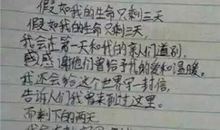 假如我的生命只剩三天
假如我的生命只剩三天
我会在第一天和我的亲人们道别
感谢他们曾给予我的爱和温暖
我还会给这个世界写一封信
告诉人们我曾来到过这里
而剩下的两天